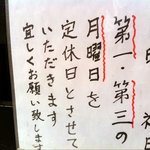 第一・第三の
月曜日を
定休日とさせて
いただきます
宜しくお願い致します